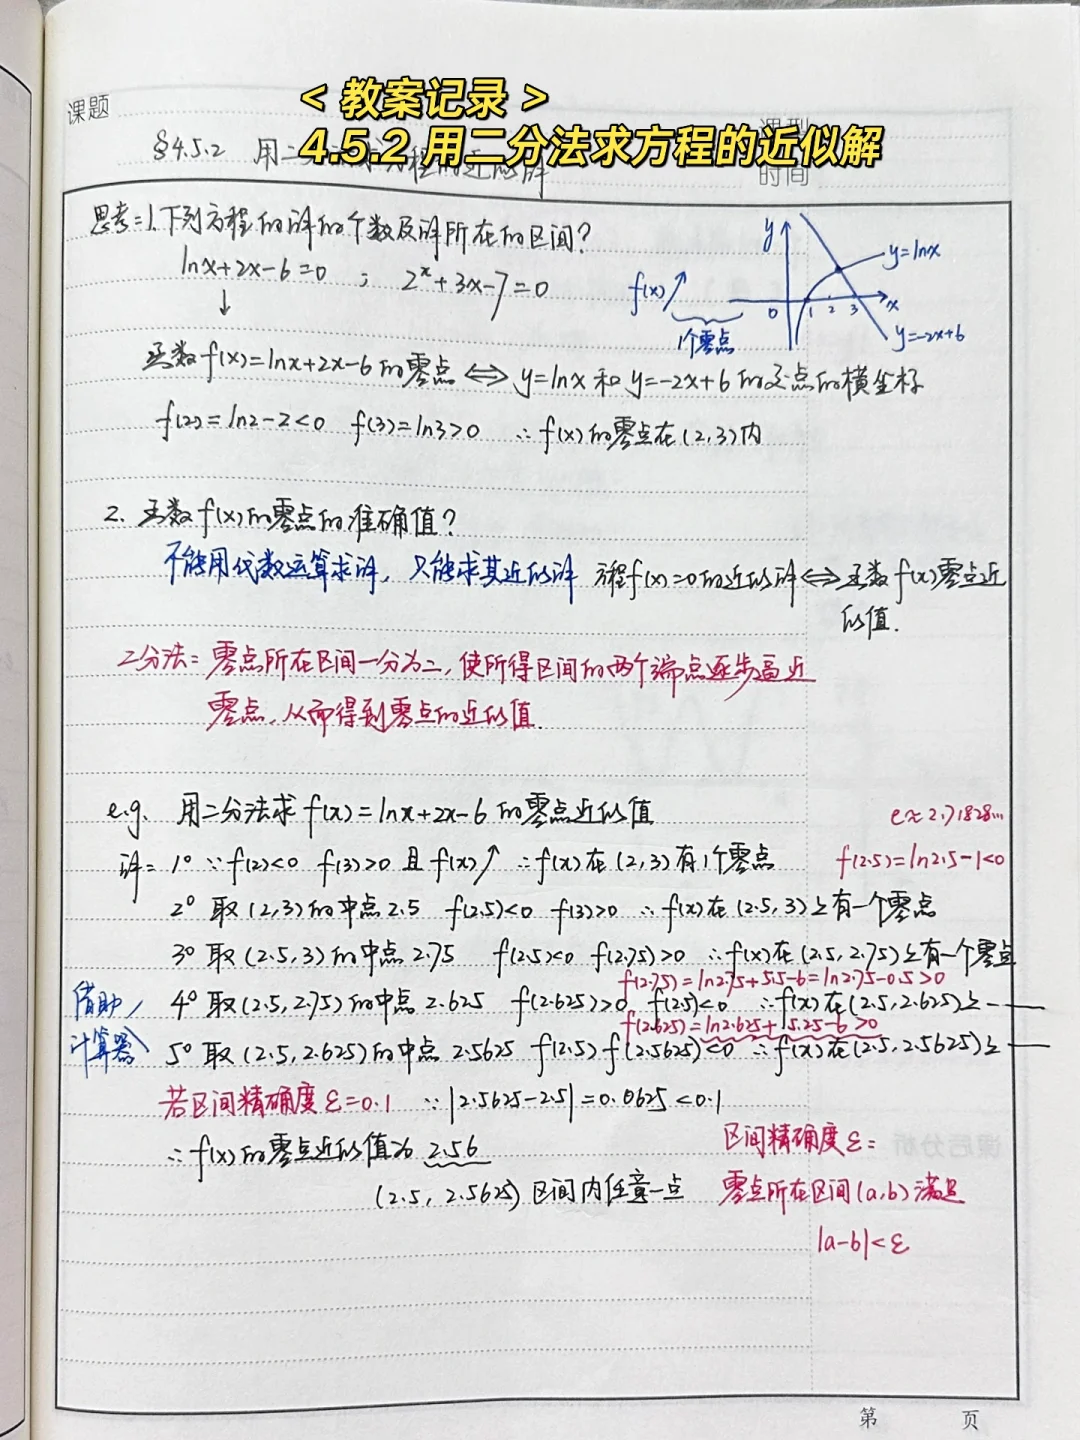 <教案记录>
4.5.2 用二分法求方程的近似解
课题
课型
§4.5.2 用二分法求方程的近似解
时间
思考:1.下列方程的解的个数及解所在的区间?
lnx+2x-6=0 ; 2ˣ+3x-7=0
↓
f(x)↗
1个零点
y
y=lnx
0 1 2 3 x
y=-2x+6
函数f(x)=lnx+2x-6的零点⇔y=lnx和y=-2x+6的交点的横坐标
f(2)=ln2-2<0 f(3)=ln3>0 ∴f(x)的零点在(2,3)内
2. 函数f(x)的零点的准确值?
不能用代数运算求解, 只能求其近似解 方程f(x)=0的近似解⇔函数f(x)零点近
似值.
二分法:零点所在区间一分为二,使所得区间的两个端点逐步逼近
零点,从而得到零点的近似值.
e.g. 用二分法求f(x)=lnx+2x-6的零点近似值
e≈2.71828...
解:1° ∵f(2)<0 f(3)>0 且f(x)↗ ∴f(x)在(2,3)有1个零点
f(2.5)=ln2.5-1<0
2° 取(2,3)的中点2.5 f(2.5)<0 f(3)>0 ∴f(x)在(2.5,3)上有一个零点
3° 取(2.5,3)的中点2.75 f(2.5)<0 f(2.75)>0 ∴f(x)在(2.5,2.75)上有一个零点
f(2.75)=ln2.75+5.5-6=ln2.75-0.5>0
借助
计算器
4° 取(2.5,2.75)的中点2.625 f(2.625)>0 f(2.5)<0 ∴f(x)在(2.5,2.625)上——
f(2.625)=ln2.625+5.25-6>0
5° 取(2.5,2.625)的中点2.5625 f(2.5)f(2.5625)<0 ∴f(x)在(2.5,2.5625)上——
若区间精确度ε=0.1 ∵|2.5625-2.5|=0.0625<0.1
∴f(x)的零点近似值为2.56
(2.5, 2.5625)区间内任意一点
区间精确度ε:
零点所在区间(a,b)满足
|a-b|<ε
第 页